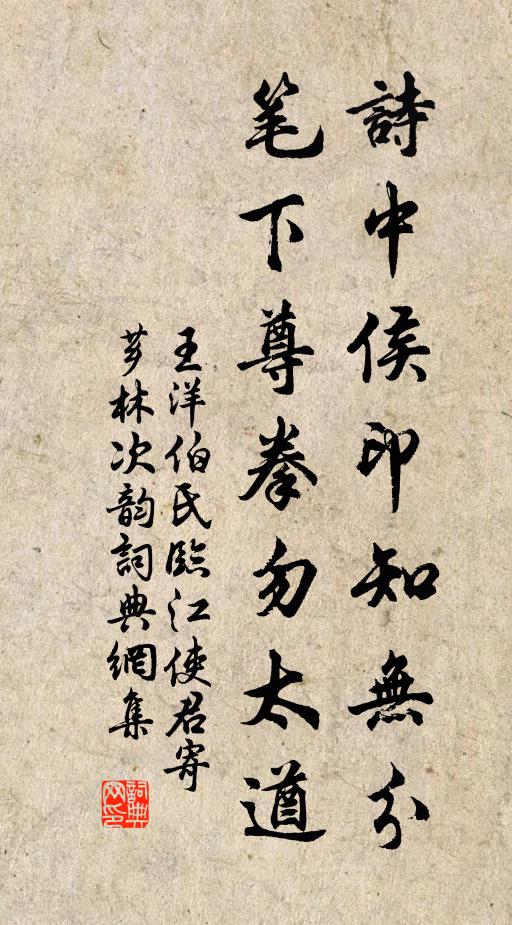 詩中侯印知無分
笔下尊拳勿太遒
王洋伯氏臨江使君寄
芗林次韵詞典網集
詞典网印